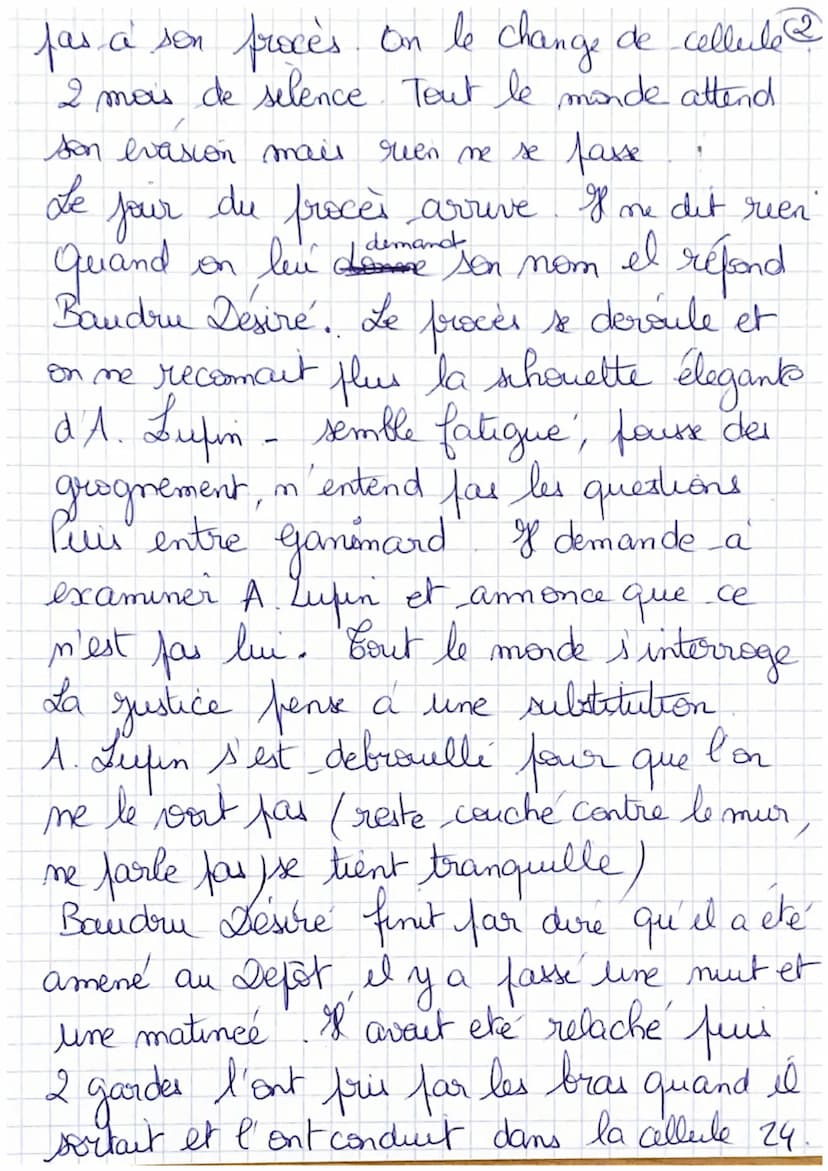 pas à son procès. On le change de cellule ②
2 mois de silence. Tout le monde attend
son évasion mais rien ne se passe.
Le jour du procès arrive. Il ne dit rien
Quand on lui demande son nom il répond
Baudru Désiré. Le procès se deroule et
on ne reconnait plus la schouette élegante
d'A. Lupin - semble fatigué, pousse des
grognement, n'entend pas les questions
Puis entre Ganimard. Il demande à
examiner A. Lupin et annonce que ce
n'est pas lui. Tout le monde s'interroge
La justice pense à une substitution.
A. Lupin s'est debrouillé pour que l'on
ne le voit pas (reste couché contre le mur,
ne parle pas, se tient tranquille)
Baudru Désiré finit par dire qu'il a été
amené au Depôt, il y a passé une nuit et
une matinée. Il avait été relaché puis
2 gardes l'ont pris par les bras quand il
sortait et l'ont conduit dans la cellule 24.